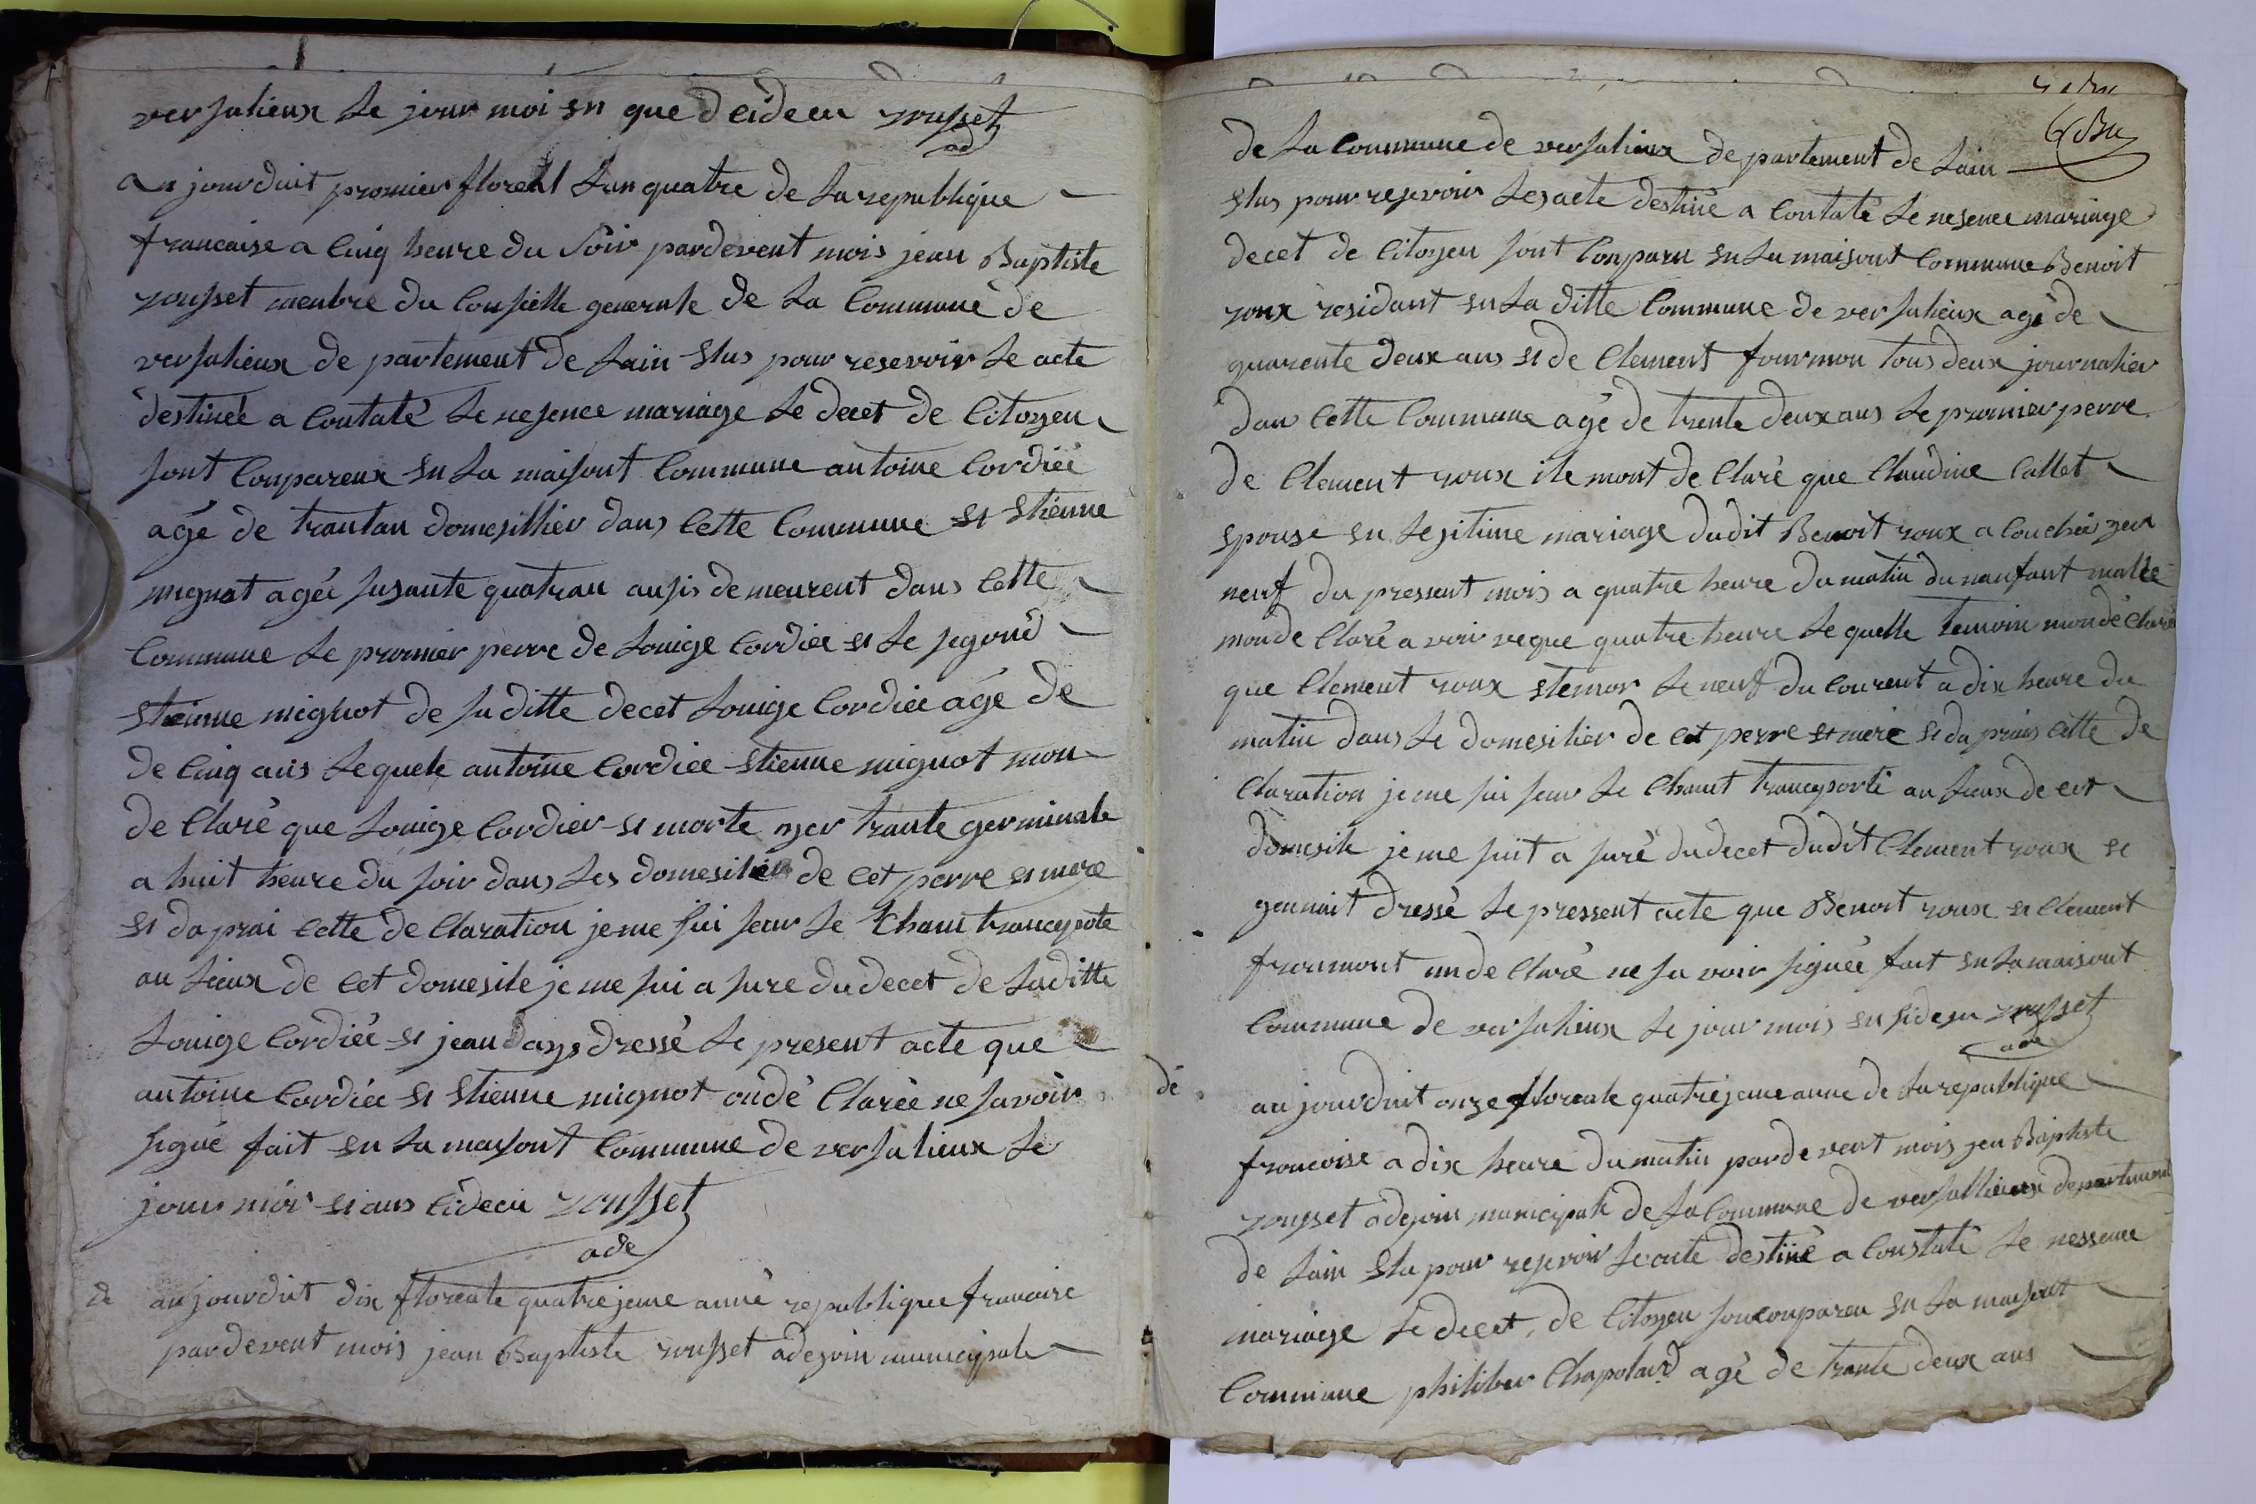 versalieux le jour moi en que decideu rousset
ad
au jourduit promier floreal lan quatre de la republique
francaise a cinq heure du soir pardevent mois jean Baptiste
rousset menbre du consielle generale de la commune de
versalieux de partement de lain elus pour reservoir le acte
destineé a contaté le nesence mariage le decet de citoyen
sont conpareux en la maisont commune antoine Cordieé
agé de trantan domesillier dans cette commune et etienne
mignot ageé susante quatran ausis demeurent dans cette
commune le promier perre de louige Cordiée et le segond
etienne mignot de la ditte decet louige Cordiée age de
de cinq ans lequele antoine Cordiee etienne mignot mon
de claré que louige Cordier et morte yer trante germinale
a huit heure du soir dans les domesilier de cet perre et mere
et daprai cette de claration jeme sui seur le chant trancypote
au lieux de cet domesile jeme sui a sure du decet de laditte
louige Cordieé et jean days dressé le present acte que
antoine Cordiée et etienne mignot ondé claréé ne savoir
signé fait en la maysont commune de versalieux le
jour moi et ans cidecu rousset
ade
de au jourduit dix floreale quatrejeme anné republique francoise
pardevent mois jean Baptiste rousset adejoin municipale
de la commune de versalieux de partement de lain
elus pour resevoir les acte destiné a contaté le nesence mariage
decet de citoyen sont conparu en la maisont commune Benoit
roux residant en la ditte commune de versalieux agé de
quarente deux ans et de clement fourmon tous deux journalier
dan cette commune agé de trente deux ans le promier perre
de Clement roux ile mont de claré que Claudine Callet
epouse en legitime mariage dudit Benoit roux a couchéé yer
neuf du pressent mois a quatre heure du matin dunanfant malle
monde claré a voir veque quatre heure lequelle temoin mondé claré
que Clement roux etemor le neuf du courent a dix heure du
matin dans le domesilier de cet perre et mere et daprais cette de
claration jeme sui seur le chant trancyporté au lieux de cet
domesile jeme suit a suré du decet dudit Clement roux et
gennait dressé le pressent acte que Benoit roux et Clement
froumont onde claré ne sa voir signéé fait en la maisont
commune de versalieux le jour mois en sidesu rousset
ade
dé au jourduit onze floreale quatriejeme anne de la republique
francoise a dix heure du matin pardevent mois jeu Baptiste
rousset adejoin municipale de la commune de versallieux departement
de lain elu pour resevoir le acte destiné a constaté le nessence
mariage le decet de citoyen son conpareu en la maisont
commune philiber Chapolard agé de trante deux ans